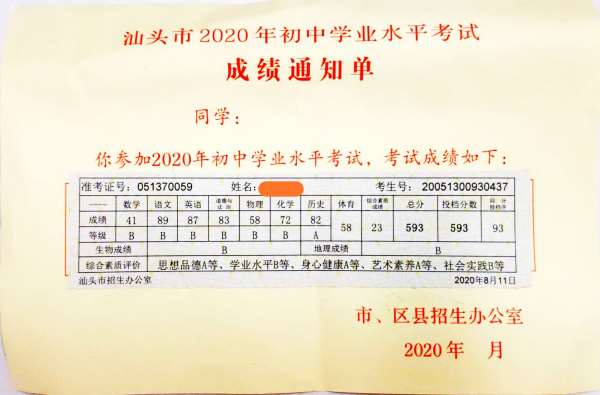 汕头市2020年初中学业水平考试
成绩通知单
同学：
你参加2020年初中学业水平考试，考试成绩如下：
准考证号：051370059 姓名： 考生号：20051300930437
---- 数学 语文 英语 道德与法治 物理 化学 历史 体育 综合素质成绩 总分 投档分数 同分投档序
成绩 41 89 87 83 58 72 82 58 23 593 593 93
等级 B B B B B B A
生物成绩 B 地理成绩 B
综合素质评价 思想品德A等、学业水平B等、身心健康A等、艺术素养A等、社会实践B等
汕头市招生办公室 2020年8月11日
市、区县招生办公室
2020年 月